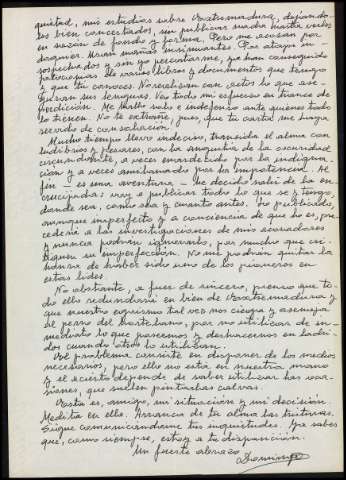 quietud, mis estudios sobre Extremadura, dejando-
los bien concertados, sin publicar nada hasta verlos
en sazón de fondo y forma. Pero me acosan por
doquier. Usan mañas insinuantes. Por atajos in-
sospechados y sin yo percatarme, ya han conseguido
fotocopias de varios libros y documentos que tengo
y que tú conoces. Ya realizan con éstos lo que ase-
guran sus lenguas. Veo todo mi esfuerzo en trance de
perdición. Me hallo solo e indefenso ante quienes todo
lo tienen. No te extrañe, pues, que tu carta me haya
servido de consolación.
Mucho tiempo llevo indeciso, transida el alma con
ludibrios y pesares, con la angustia de la oscuridad
circundante, a veces enardecido por la indigna-
ción y a veces arruinado por la impotencia. Al
fin — es una aventura — he decidido salir de la en-
crucijada: voy a publicar todo lo que sé y tengo,
donde sea, como sea y cuanto antes. Lo publicado,
aunque imperfecto y a conciencia de que lo es, pre-
cederá a las investigaciones de mis acosadores
y nunca podrán ignorarlo, por mucho que cri-
tiquen su imperfección. No me podrán quitar la
honra de haber sido uno de los pioneros en
estas lides.
No obstante, a fuer de sincero, pienso que to-
do ello redundaría en bien de Extremadura y
que nuestro egoísmo tal vez nos ciega y asemeja
al perro del hortelano, por no utilizar de in-
mediato lo que poseemos y deshacernos en ladri-
dos cuando otros lo utilizan.
El problema consiste en disponer de los medios
necesarios, pero ello no está en nuestra mano
y el acierto depende de saber utilizar las oca-
siones, que suelen pintarlas calvas.
Esta es, amigo, mi situación y mi decisión.
Medita en ella. Arranca de tu alma las tristuras.
Sigue comunicándome tus inquietudes. Ya sabes
que, como siempre, estoy a tu disposición.
Un fuerte abrazo
Domingo